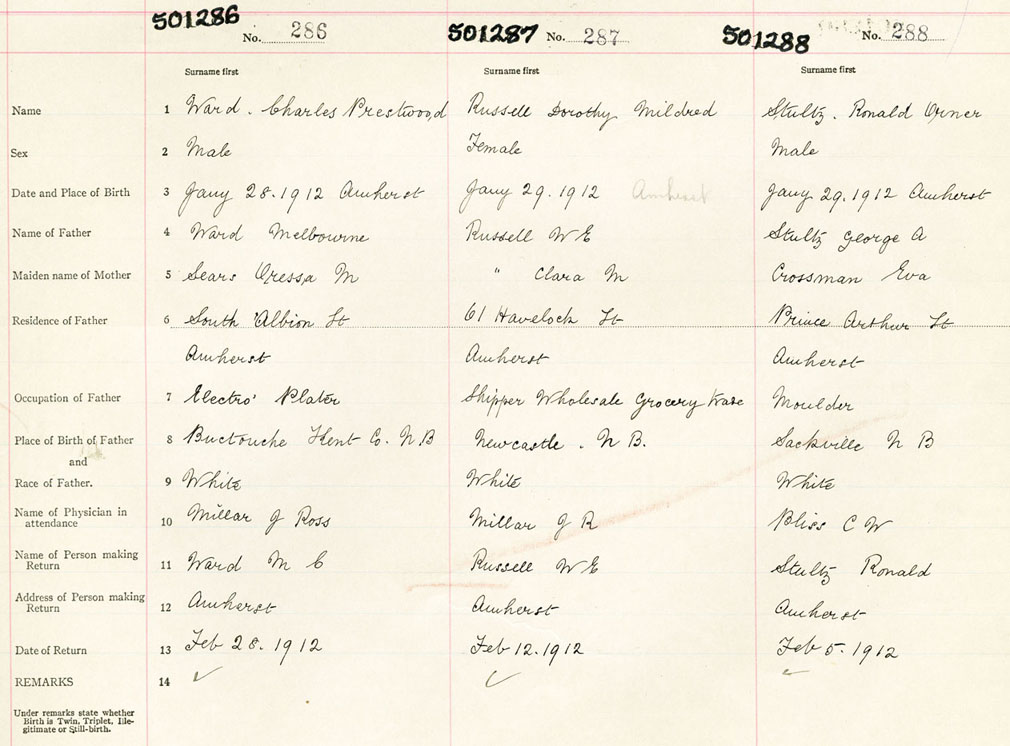 501286 No. 286 501287 No. 287 501288 No. 288
Surname first Surname first Surname first
Name 1 Ward . Charles Prestwood Russell Dorothy Mildred Stultz . Ronald Orner
Sex 2 Male Female Male
Date and Place of Birth 3 Jany 28.1912 Amherst Jany 29.1912 Amherst Jany 29.1912 Amherst
Name of Father 4 Ward Melbourne Russell W E Stultz George A
Maiden name of Mother 5 Sears Oressa M " Clara M Crossman Eva
Residence of Father 6 South Albion St 61 Havelock St Prince Arthur St
Amherst Amherst Amherst
Occupation of Father 7 Electro Plater Shipper Wholesale Grocery Moulder
Place of Birth of Father 8 Buctouche Kent Co. N B Newcastle . N B. Sackville N B
and
Race of Father. 9 White White White
Name of Physician in
attendance 10 Millar J Ross Millar J R Bliss C W
Name of Person making
Return 11 Ward M C Russell W E Stultz Ronald
Address of Person making
Return 12 Amherst Amherst Amherst
Date of Return 13 Feb 28.1912 Feb 12.1912 Feb 5.1912
REMARKS 14 ✓ ✓ ✓
Under remarks state whether
Birth is Twin, Triplet, Ille-
gitimate or Still-birth.